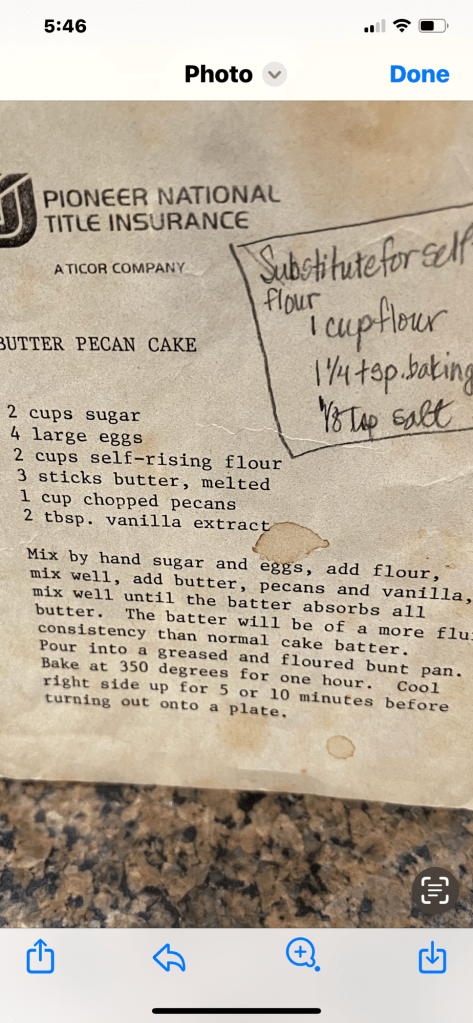 5:46
Photo
Done
PIONEER NATIONAL
TITLE INSURANCE
A TICOR COMPANY
Substitute for self
flour
1 cup flour
1 1/4 tsp. baking
1/8 Tsp salt
BUTTER PECAN CAKE
2 cups sugar
4 large eggs
2 cups self-rising flour
3 sticks butter, melted
1 cup chopped pecans
2 tbsp. vanilla extract
Mix by hand sugar and eggs, add flour,
mix well, add butter, pecans and vanilla,
mix well until the batter absorbs all
butter. The batter will be of a more flui
consistency than normal cake batter.
Pour into a greased and floured bunt pan.
Bake at 350 degrees for one hour. Cool
right side up for 5 or 10 minutes before
turning out onto a plate.